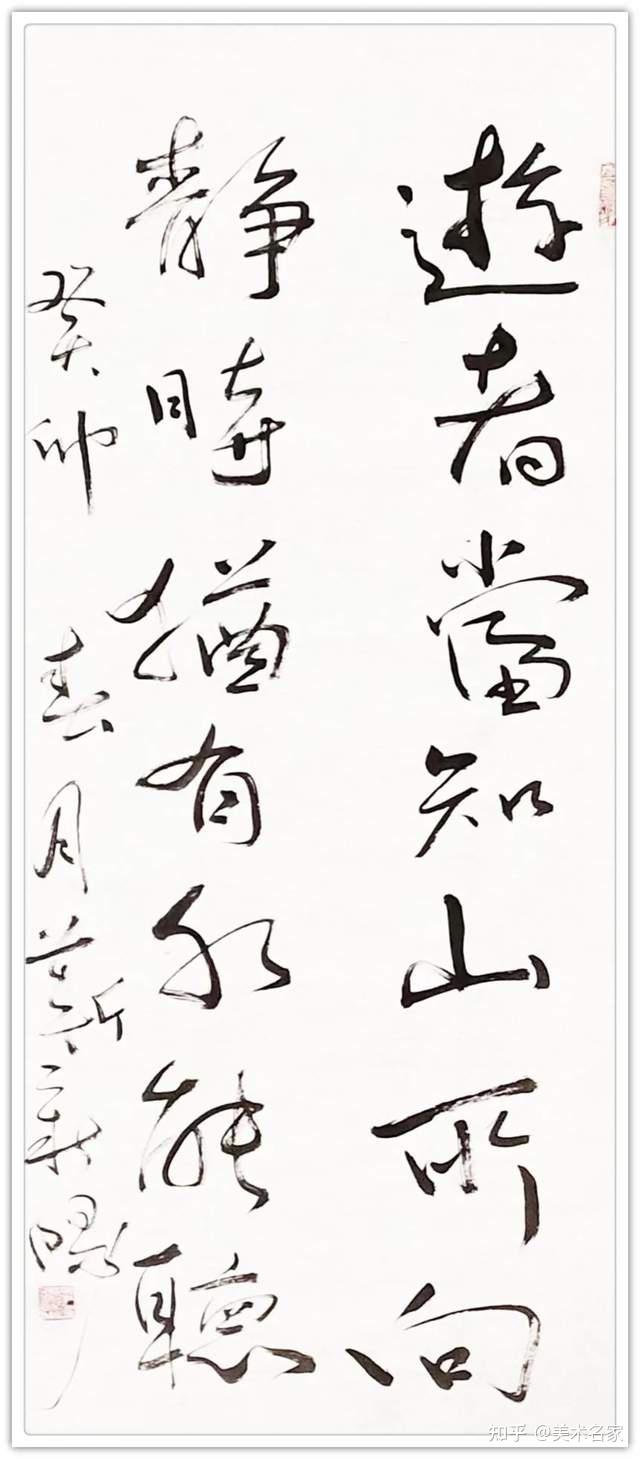 遊者當知山所向
靜時猶有水能聽
癸卯春月
知乎 @美术名家